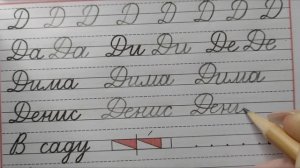 Д Д Д Д Д Д Д Д
Да Да Ди Ди Де Де
Дима Дима Дима
Денис Денис Дени
В саду